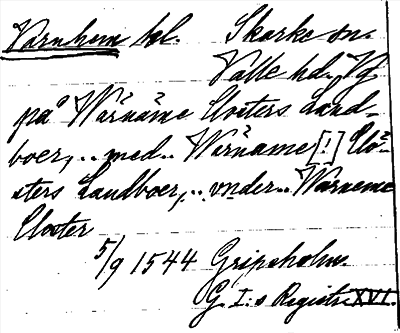 Varnhem kl. Skarke sn.
Valle hd. Vg.
på Wärnäme Closters Land-
boer, .. med .. Wärname [!] Clo-
sters Landboer, .. vnder .. Warneme
Closter
5/9 1544 Gripsholm.
G. I:s Registr. XVI.